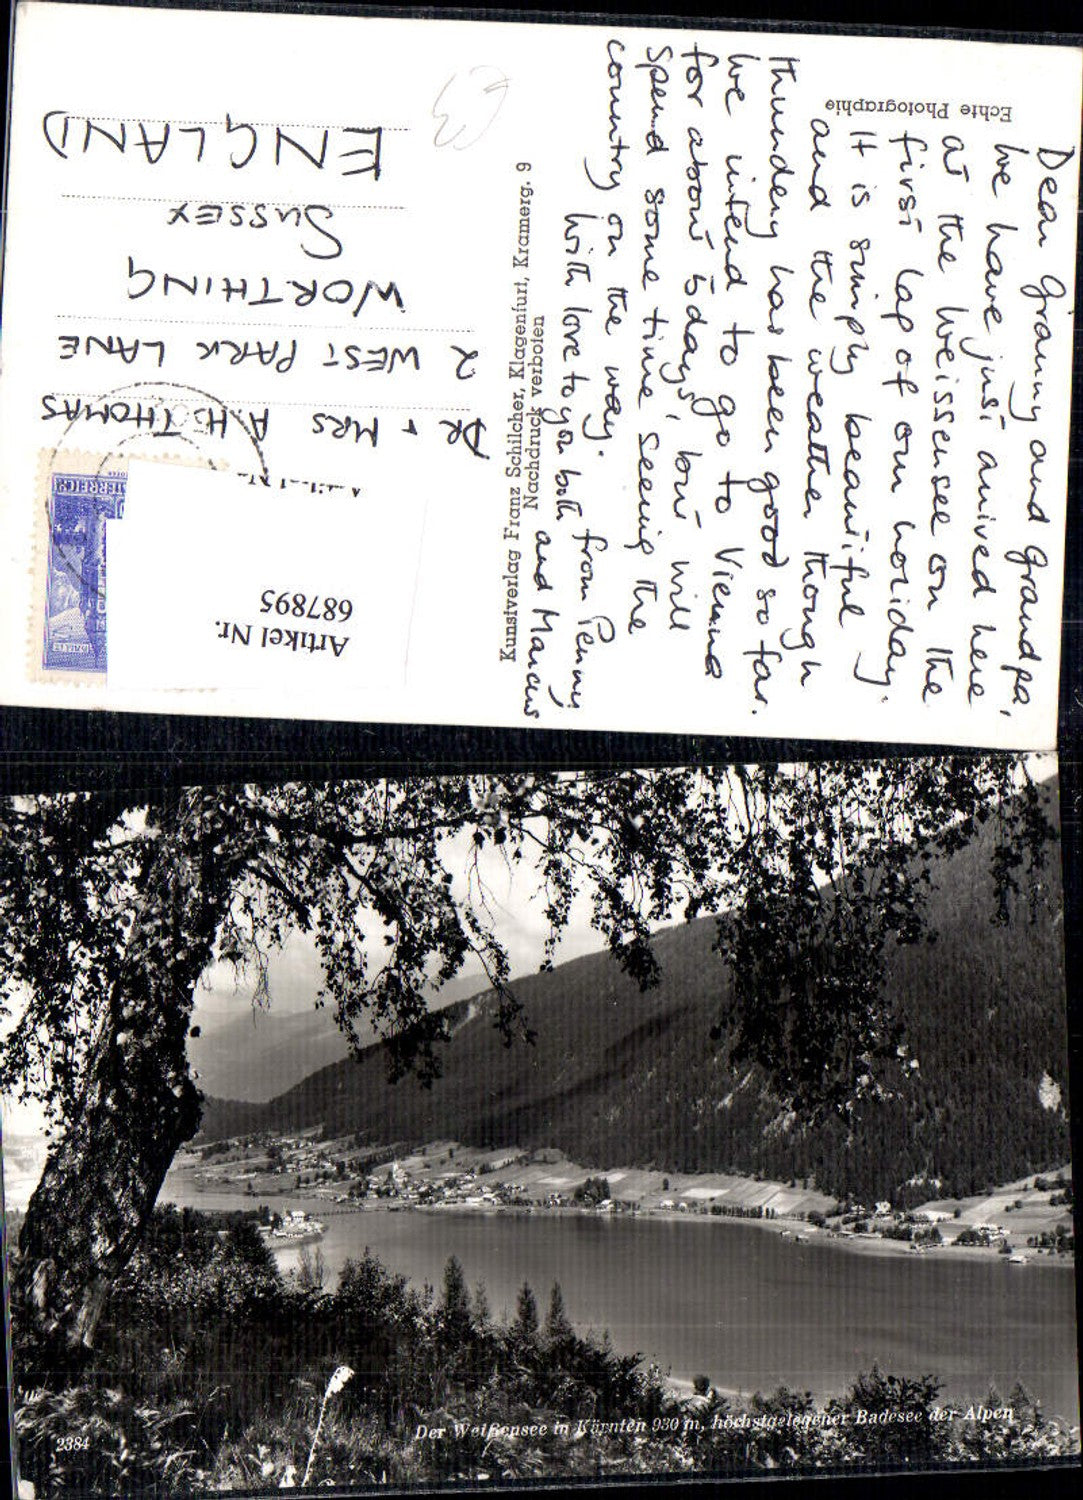 Echte Photographie
Dear Granny and Grandpa,
We have just arrived here
at the Weissensee on the
first lap of our holiday.
It is simply beautiful
and the weather though
thundery has been good so far.
We intend to go to Vienna
for about 5 days, but will
spend some time seeing the
country on the way.
With love to you both from Penny
and Marcus
Kunstverlag Franz Schilcher, Klagenfurt, Kramerg. 9
Nachdruck verboten
DR + MRS A.H. THOMAS
2 WEST PARK LANE
WORTHING
SUSSEX
ENGLAND
£3
Artikel Nr.
687895
2384
Der Weißensee in Kärnten 930 m, höchstgelegener Badesee der Alpen